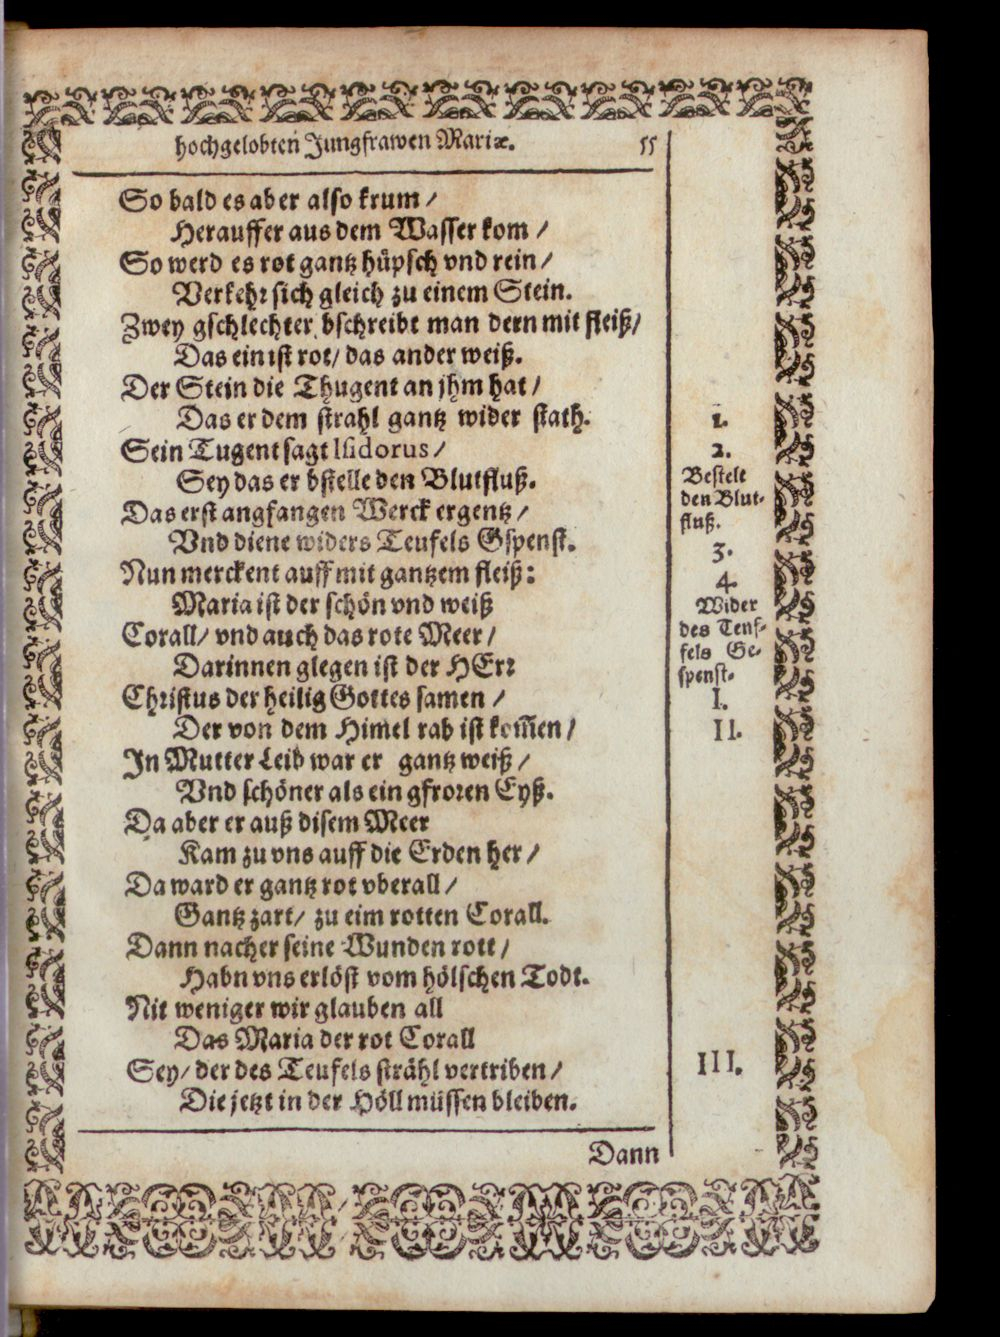 hochgelobten Jungfrawen Mariæ. 55
So bald es aber also krum /
Herauffer aus dem Wasser kom /
So werd es rot gantz hüpsch vnd rein /
Verkehr sich gleich zu einem Stein.
Zwey gschlechter bschreibt man dern mit fleiß /
Das ein ist rot / das ander weiß.
Der Stein die Thugent an jhm hat /
Das er dem strahl gantz wider stath.
1.
Sein Tugent sagt Isidorus /
2.
Sey das er bstelle den Blutfluß.
Bestelt
den Blut-
fluß.
Das erst angfangen Werck ergentz /
Vnd diene widers Teufels Gspenst.
3.
Nun merckent auff mit gantzem fleiß:
4.
Maria ist der schön vnd weiß
Wider
des Teuf-
fels Ge-
spenst.
Corall / vnd auch das rote Meer /
Darinnen glegen ist der HErr
Christus der heilig Gottes samen /
I.
Der von dem Himel rab ist kom̃en /
II.
In Mutter Leib war er gantz weiß /
Vnd schöner als ein gfroren Eyß.
Da aber er auß disem Meer
Kam zu vns auff die Erden her /
Da ward er gantz rot vberall /
Gantz zart / zu eim rotten Corall.
Dann nacher seine Wunden rott /
Habn vns erlöst vom hölschen Todt.
Nit weniger wir glauben all
Das Maria der rot Corall
Sey / der des Teufels strähl vertriben /
III.
Die jetzt in der Höll müssen bleiben.
Dann